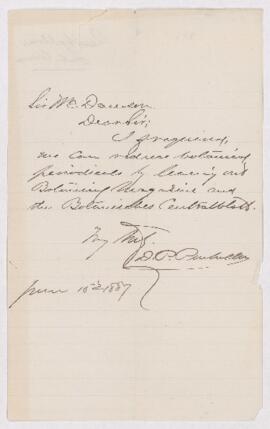 Sir Wm Dawson
Dear Sir;
If required,
we can reduce botanical
periodicals by leaving out
Botanical Magazine and
the Botanisches Centralblatt.
D. P. Penhallow
June 15th 1887